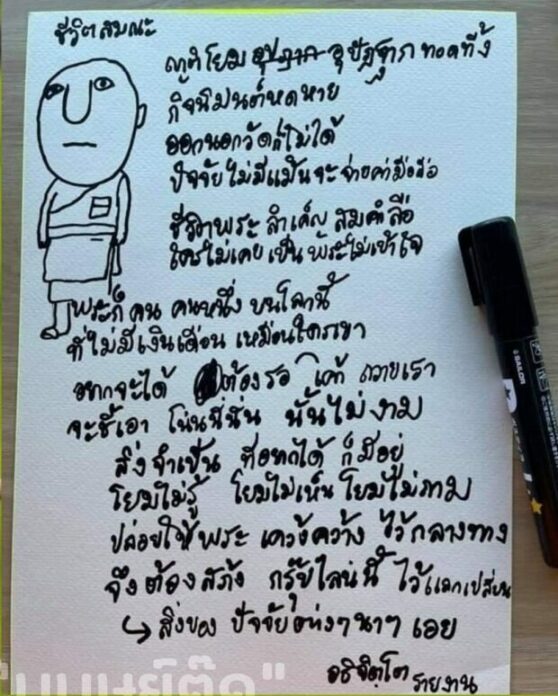 ชีวิตสมณะ
ญาติโยม อุปฐาก อุปัฏฐาก ทอดทิ้ง
กิจนิมนต์หดหาย
ออกนอกวัดก็ไม่ได้
ปัจจัยไม่มีแม้นจะจ่ายค่ามือถือ
ชีวิตพระ สำเค็ญ สมคำลือ
ใครไม่เคย เป็น พระไม่เข้าใจ
พระก็ คน คนหนึ่ง บนโลกนี้
ที่ไม่มีเงินเดือน เหมือนใครเขา
อยากจะได้ ต้องรอ เค้า ถวายเรา
จะชี้เอา โน่นนี่นั่น นั้นไม่งาม
สิ่งจำเป็น ที่อยากได้ ก็มีอยู่
โยมไม่รู้ โยมไม่เห็น โยมไม่ถาม
ปล่อยให้พระ เคว้งคว้าง ไว้กลางทาง
จึงต้องสร้าง กรุ๊ปไลน์นี้ ไว้แลกเปลี่ยน
↳ สิ่งของ ปัจจัยต่างๆ นาๆ เอย
อธิจิตฺโต
รายงาน
SAILOR
"มนุษย์ต๊ด"